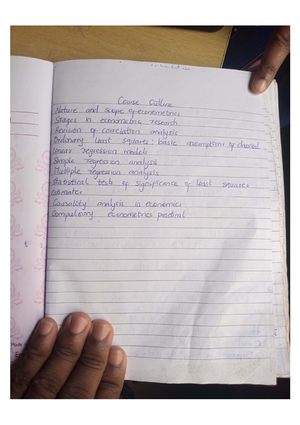 Course Outline
Nature and scope of econometrics
Stages in econometric research
Revision of correlation analysis
Ordinary least squares: basic assumption of classical
linear regression models
Simple regression analysis
Multiple regression analysis
Statistical tests of significance of least squares
estimates
Causality analysis in economics
Compulsory econometrics practical